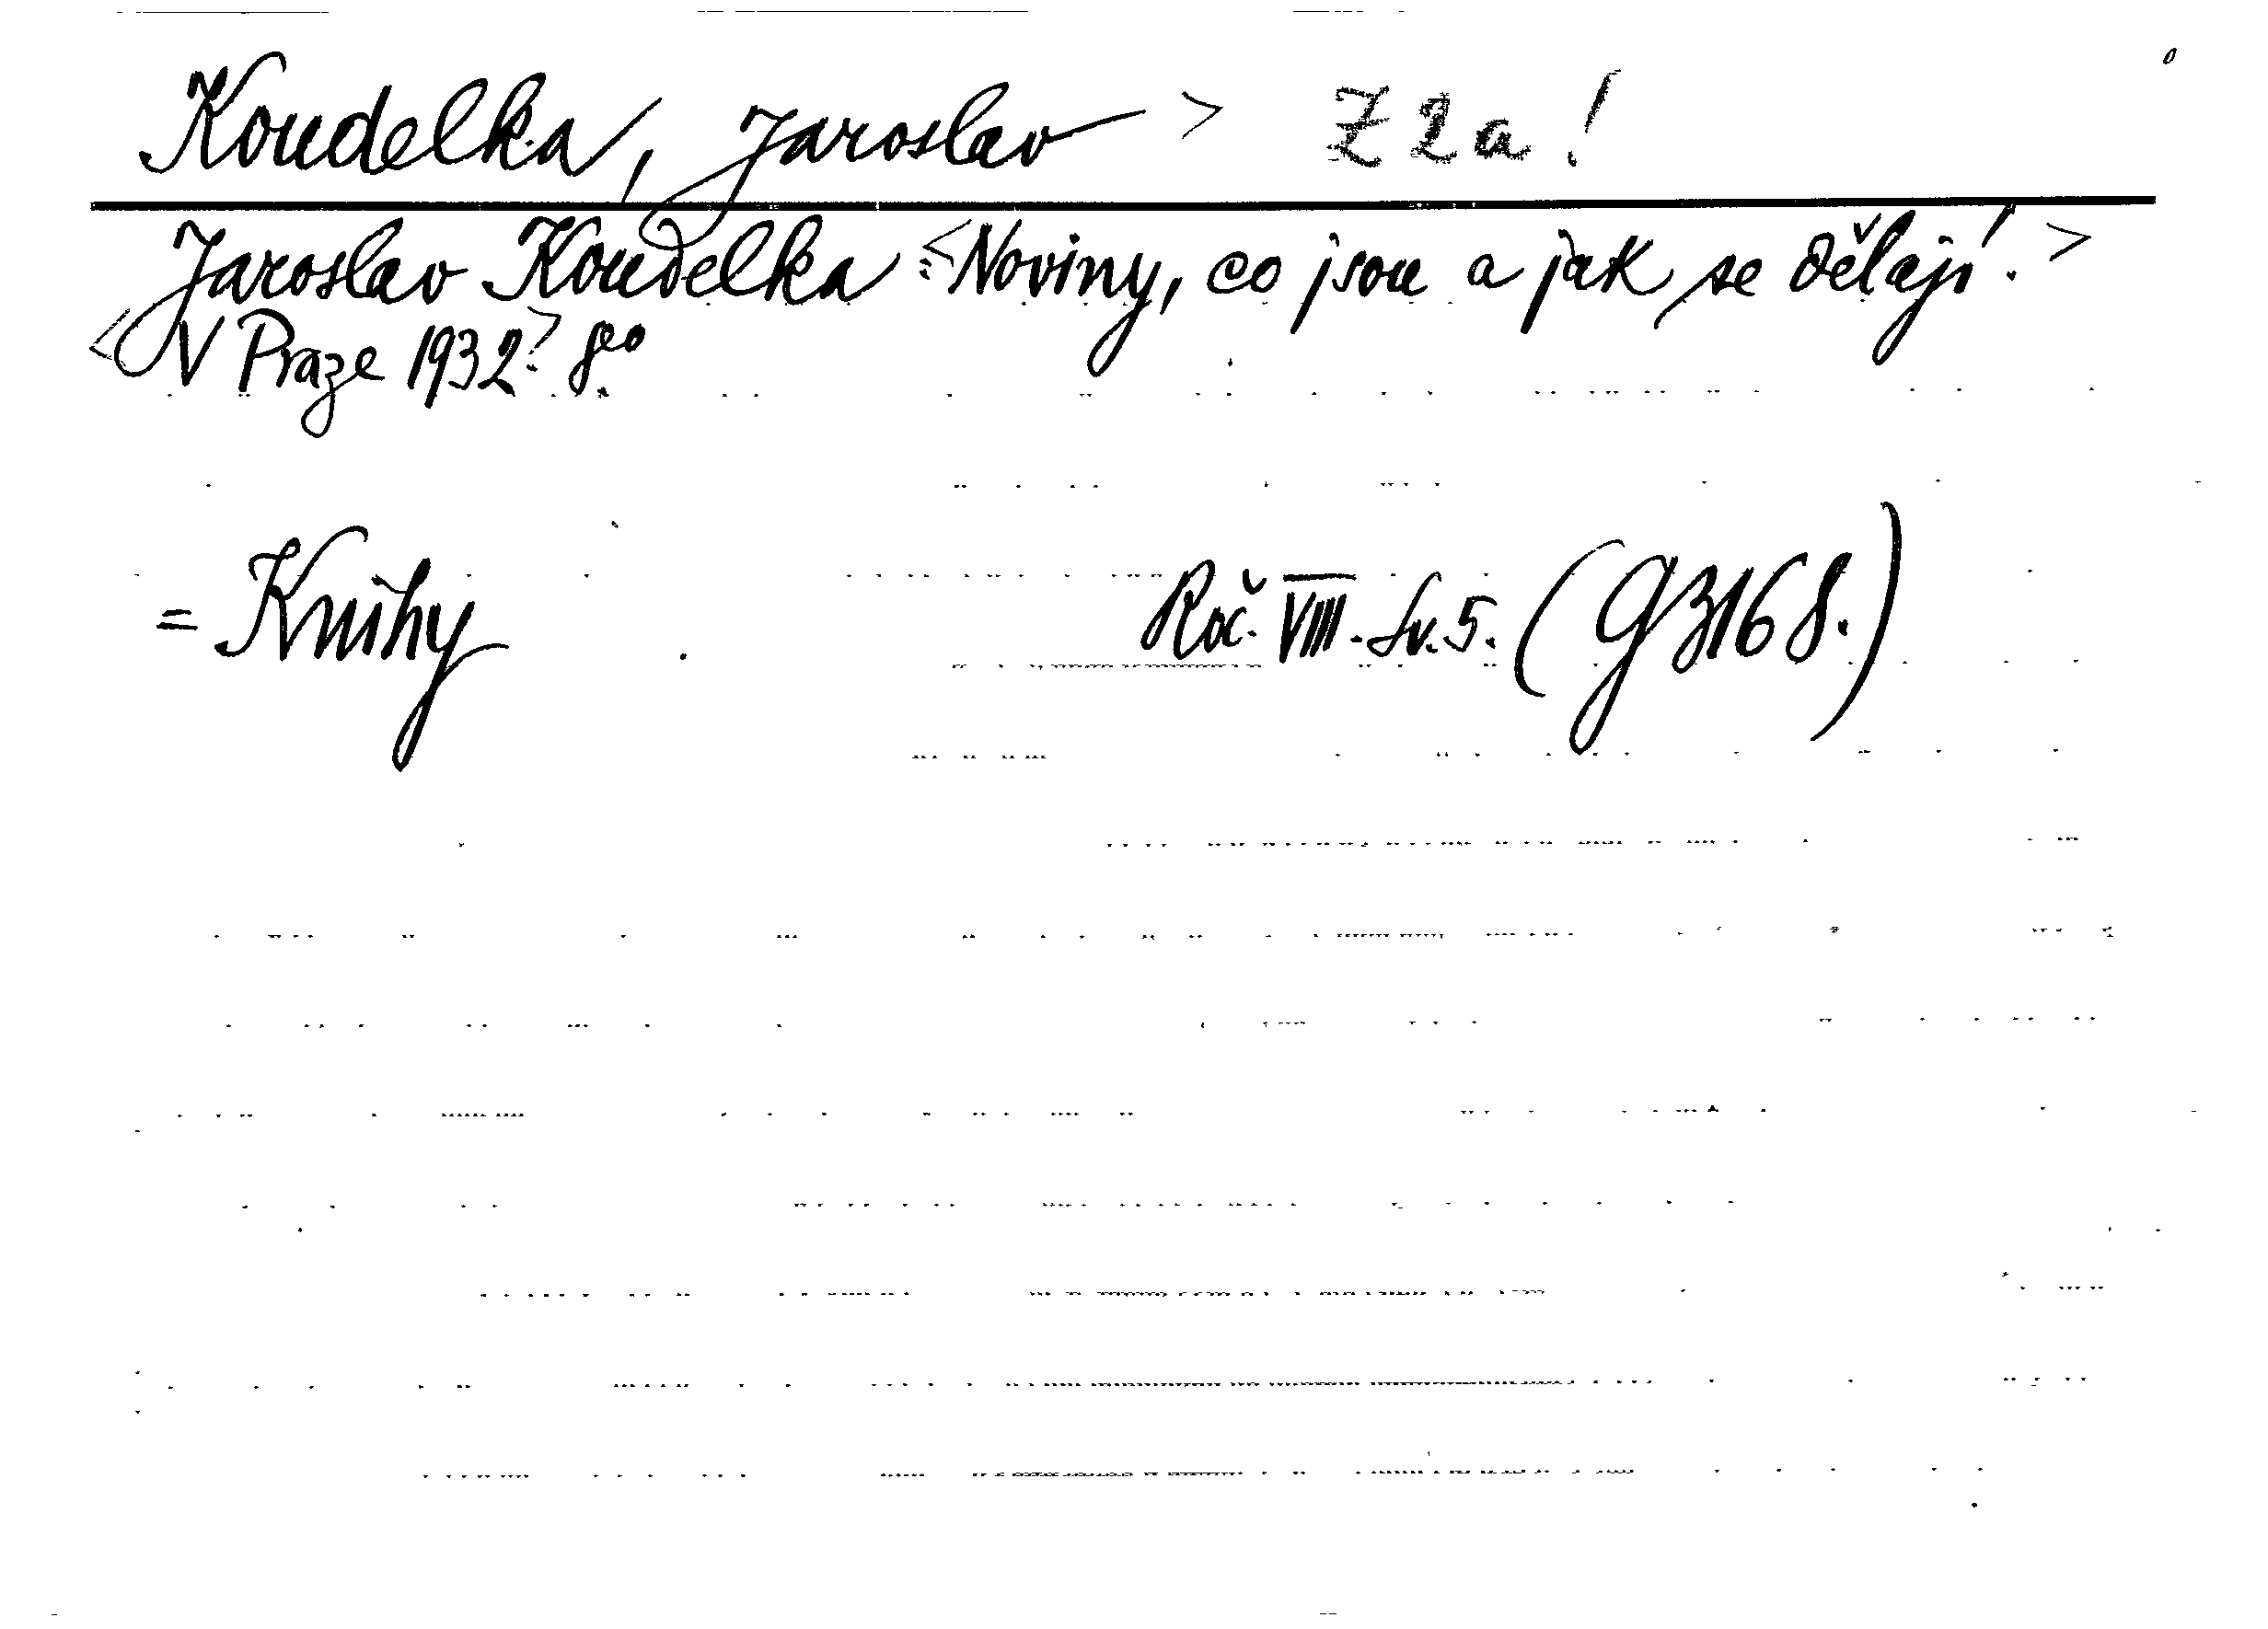 Koudelka, Jaroslav > Z 2 a !
Jaroslav Koudelka : <Noviny, co jsou a jak se dělají. >
<V Praze 1932.> 8°
= Knihy Roč. VIII. Sv. 5. (G 3168.)